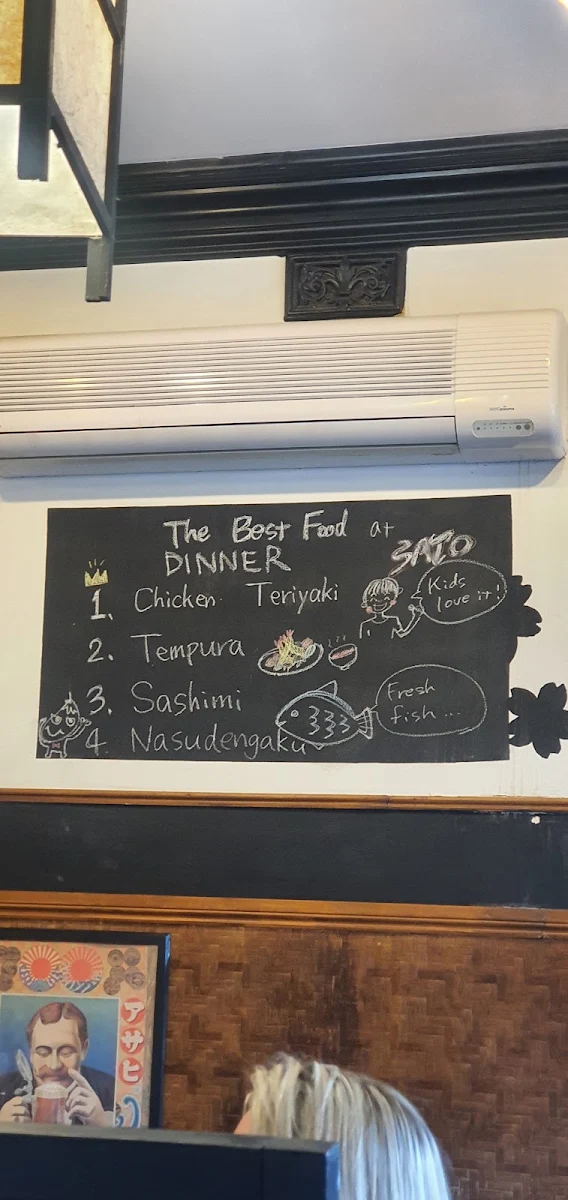 The Best Food at
SATO
DINNER
1. Chicken Teriyaki
Kids
love it!
2. Tempura
3. Sashimi
Fresh
fish ...
4. Nasudengaku
アサヒ